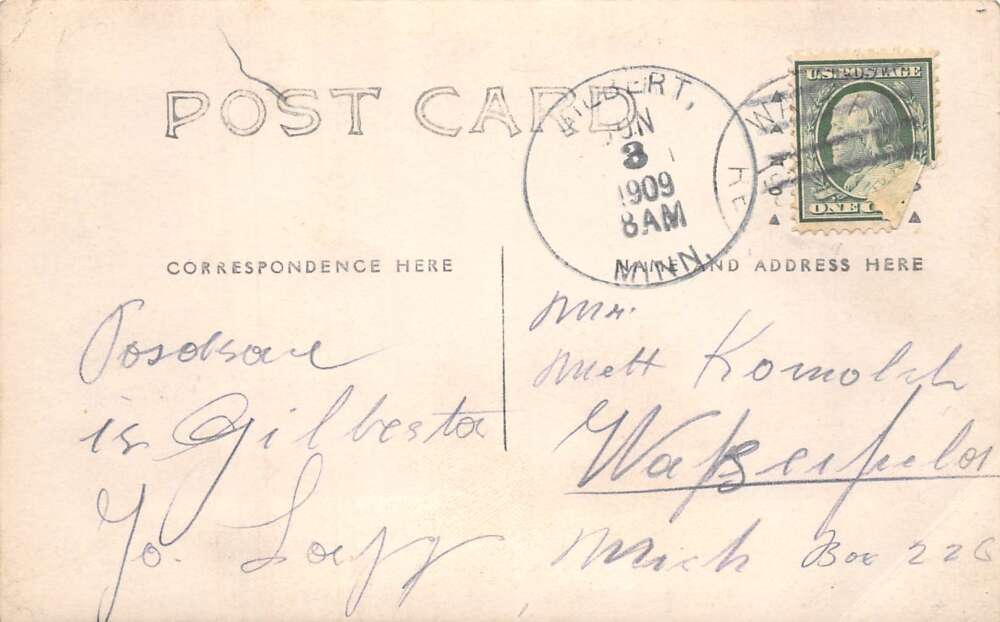 POST CARD
GILBERT,
JUN
3
1909
8AM
MINN.
U.S. POSTAGE
ONE
CORRESPONDENCE HERE
NAME AND ADDRESS HERE
is Gilberta
Yo.
Mr.
Matt Komolch
Mich Box 226